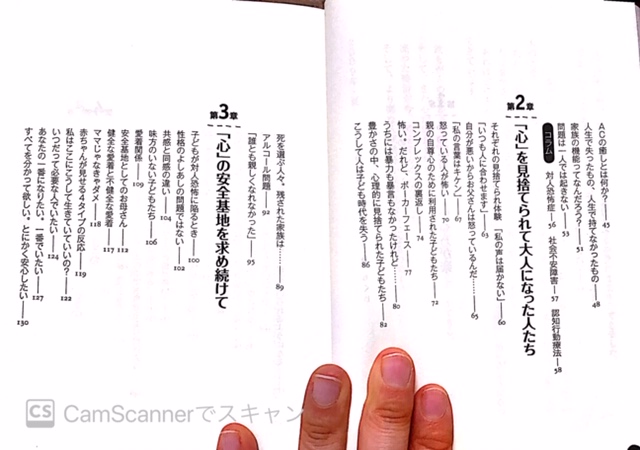 ACの癒しとは何か？——45
人生で失ったもの、人生で持てなかったもの——48
家族の機能ってなんだろう？——51
問題は一人では起きない——53
コラム 対人恐怖症—56 社会不安障害—57 認知行動療法—58
第2章
「心」を見捨てられて大人になった人たち
それぞれの見捨てられ体験 「私の声は届かない」——60
「いつも人に合わせます」——63
自分が悪いからお父さんは怒っているんだ……——65
「私の言葉はキケン」——67
怒っている人が怖い——70
親の自尊心のために利用された子どもたち——72
コンプレックスの裏返し——74
怖い、だけれど、ポーカーフェース——77
うちには暴力も暴言もなかったけれど……——80
豊かさの中、心理的に見捨てられた子どもたち——82
こうして人は子ども時代を失う——86
死を選ぶ人々、残された家族は……——89
アルコール問題——92
「誰とも親しくなれなかった」——95
第3章
「心」の安全基地を求め続けて
子どもが対人恐怖に陥るとき——100
性格のよしあしの問題ではない——102
共感と同感の違い——104
味方のいない子どもたち——106
愛着関係——109
安全基地としてのお母さん——112
健全な愛着と不健全な愛着——117
ママじゃなきゃダメ——118
赤ちゃんが見せる4タイプの反応——119
私はここにこうして生きていていいの？——122
いつだって必要な人でいたい——124
あなたの一番になりたい、一番でいたい——127
すべてを分かって欲しい、とにかく安心したい——130
CS CamScannerでスキャン